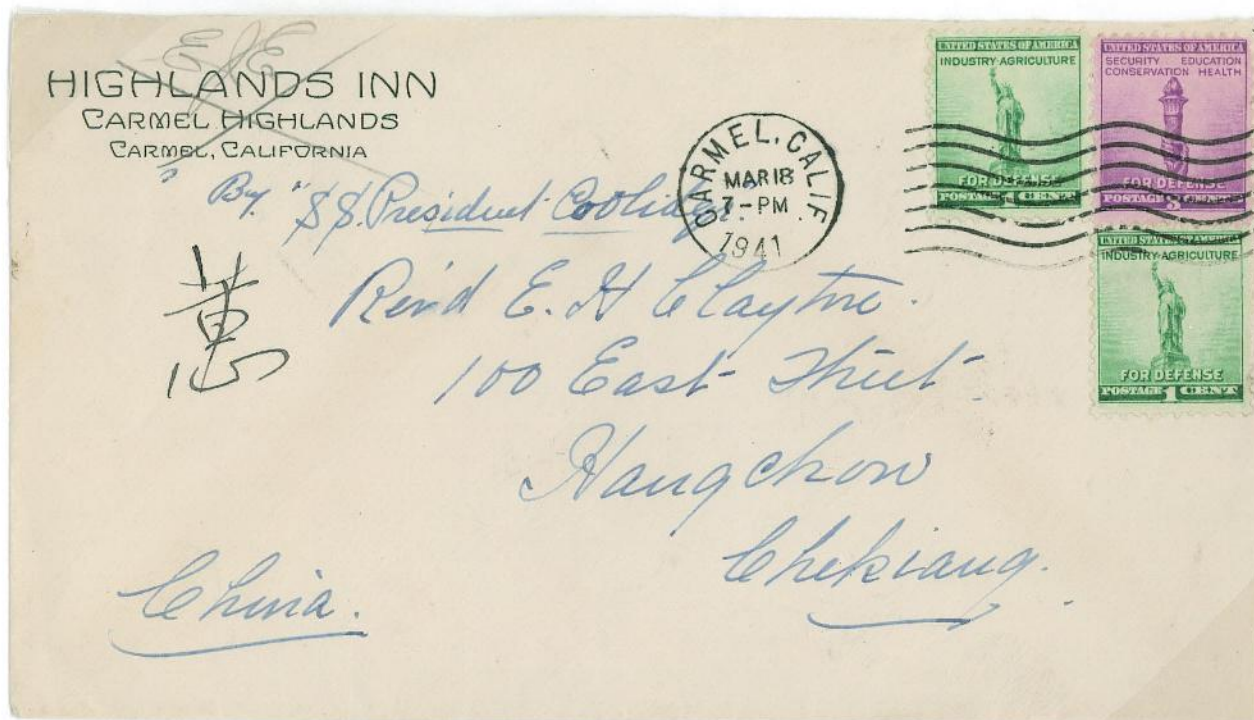 HIGHLANDS INN
CARMEL HIGHLANDS
CARMEL, CALIFORNIA
By "S.S. President Coolidge".
CARMEL, CALIF.
MAR 18
7-PM
1941
UNITED STATES OF AMERICA
INDUSTRY·AGRICULTURE
FOR DEFENSE
POSTAGE 1 CENT
UNITED STATES OF AMERICA
SECURITY EDUCATION
CONSERVATION HEALTH
FOR DEFENSE
POSTAGE 3 CENTS
UNITED STATES OF AMERICA
INDUSTRY·AGRICULTURE
FOR DEFENSE
POSTAGE 1 CENT
Rev'd E. H Clayton.
100 East Street
Hangchow
Chekiang.
China.